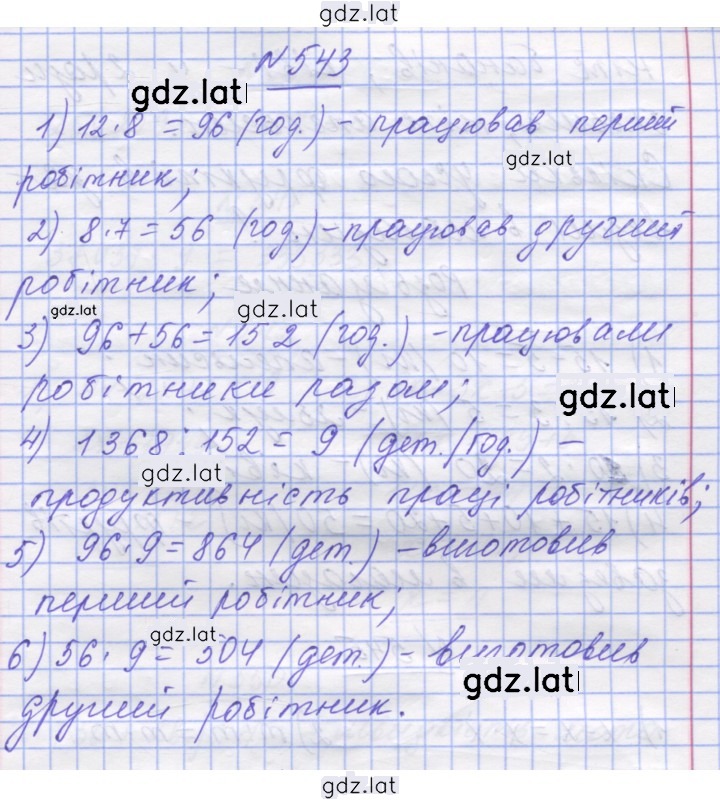 gdz.lat
№543
gdz.lat
1) 12·8 = 96 (год.) – працював перший
gdz.lat
робітник;
2) 8·7 = 56 (год.) – працював другий
робітник;
gdz.lat gdz.lat
3) 96+56 = 152 (год.) – працювали
робітники разом;
gdz.lat
4) 1368 : 152 = 9 (дет./год.) –
gdz.lat
продуктивність праці робітників;
5) 96·9 = 864 (дет.) – виготовив
перший робітник;
gdz.lat
6) 56·9 = 504 (дет.) – виготовив
gdz.lat
другий робітник.
gdz.lat